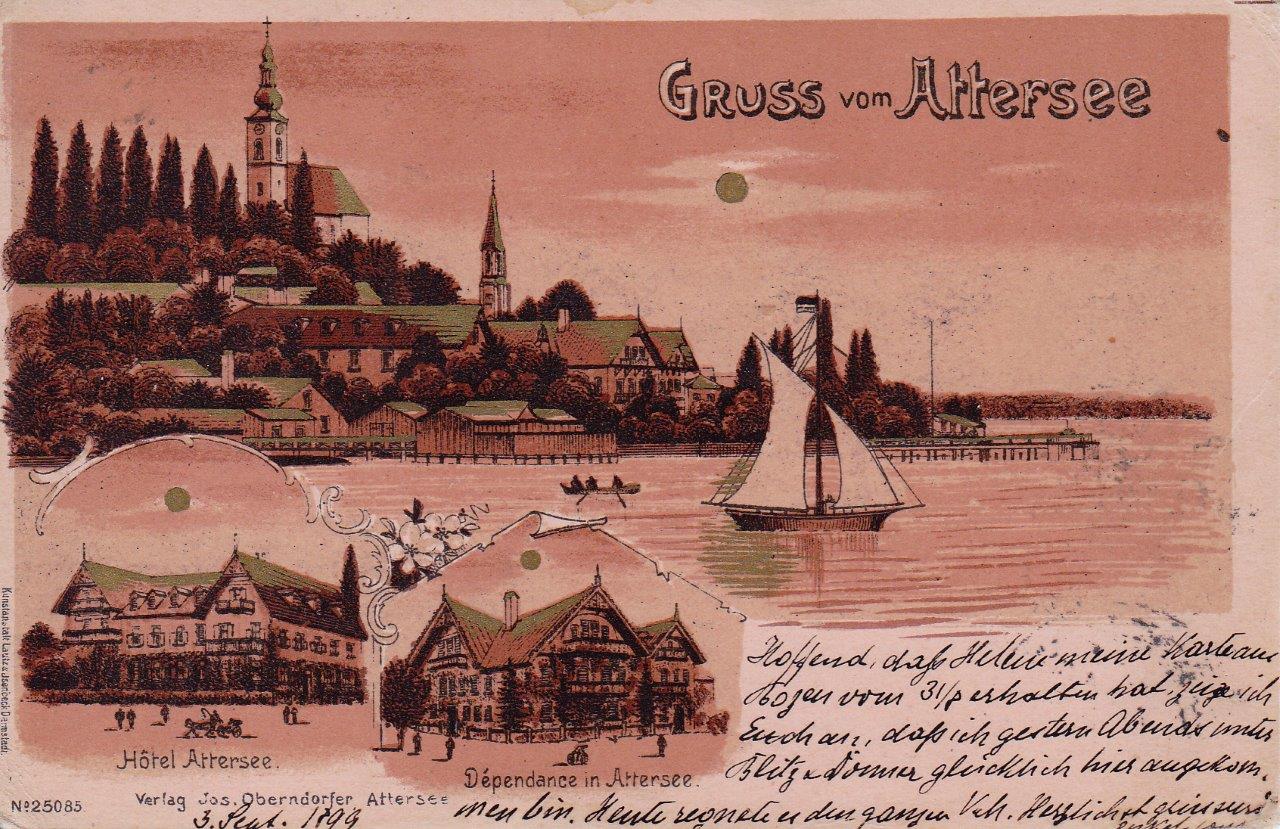 Gruss vom Attersee
Hoffend, daß Helene meine Karte aus
Bozen vom 31/8 erhalten hat, zeige ich
Euch an, daß ich gestern Abends unter
Blitz u Donner glücklich hier angekom-
men bin. Heute regnete es den ganzen Herzlichst
Hôtel Attersee.
Dépendance in Attersee.
Nº 25085.
Verlag Jos. Oberndorfer Attersee
3. Sept. 1899
Kunstanstalt Lautz & Isenbeck Darmstadt.